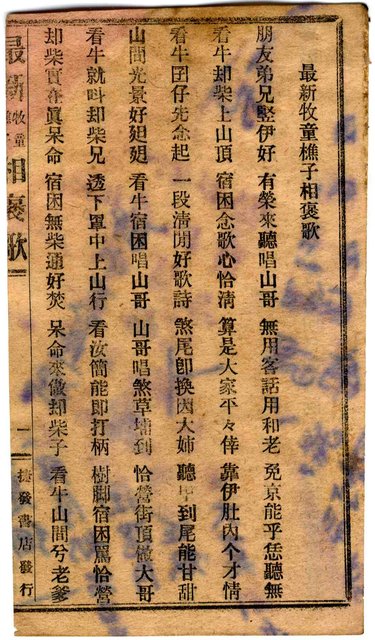 最新牧童樵子相褒歌
朋友弟兄豎伊好 有榮來聽唱山哥 無用客話用和老 免京能乎恁聽無
看牛却柴上山頂 宿困念歌心恰清 算是大家平々倖 靠伊肚內个才情
看牛囝仔先念起 一段淸閒好歌詩 煞尾卽換因大姉 聽 到尾能甘甜
山間光景好廻廻 看牛宿困唱山哥 山哥唱煞草埔到 恰營街頂做大哥
看牛就叫却柴兄 透下罩中上山行 看汝簡能即打柄 樹脚宿困罵恰營
却柴實在眞呆命 宿困無柴通好焚 呆命來做却柴子 看牛山間兮老爹
最新牧童樵子相褒歌
一
捷發書店發行